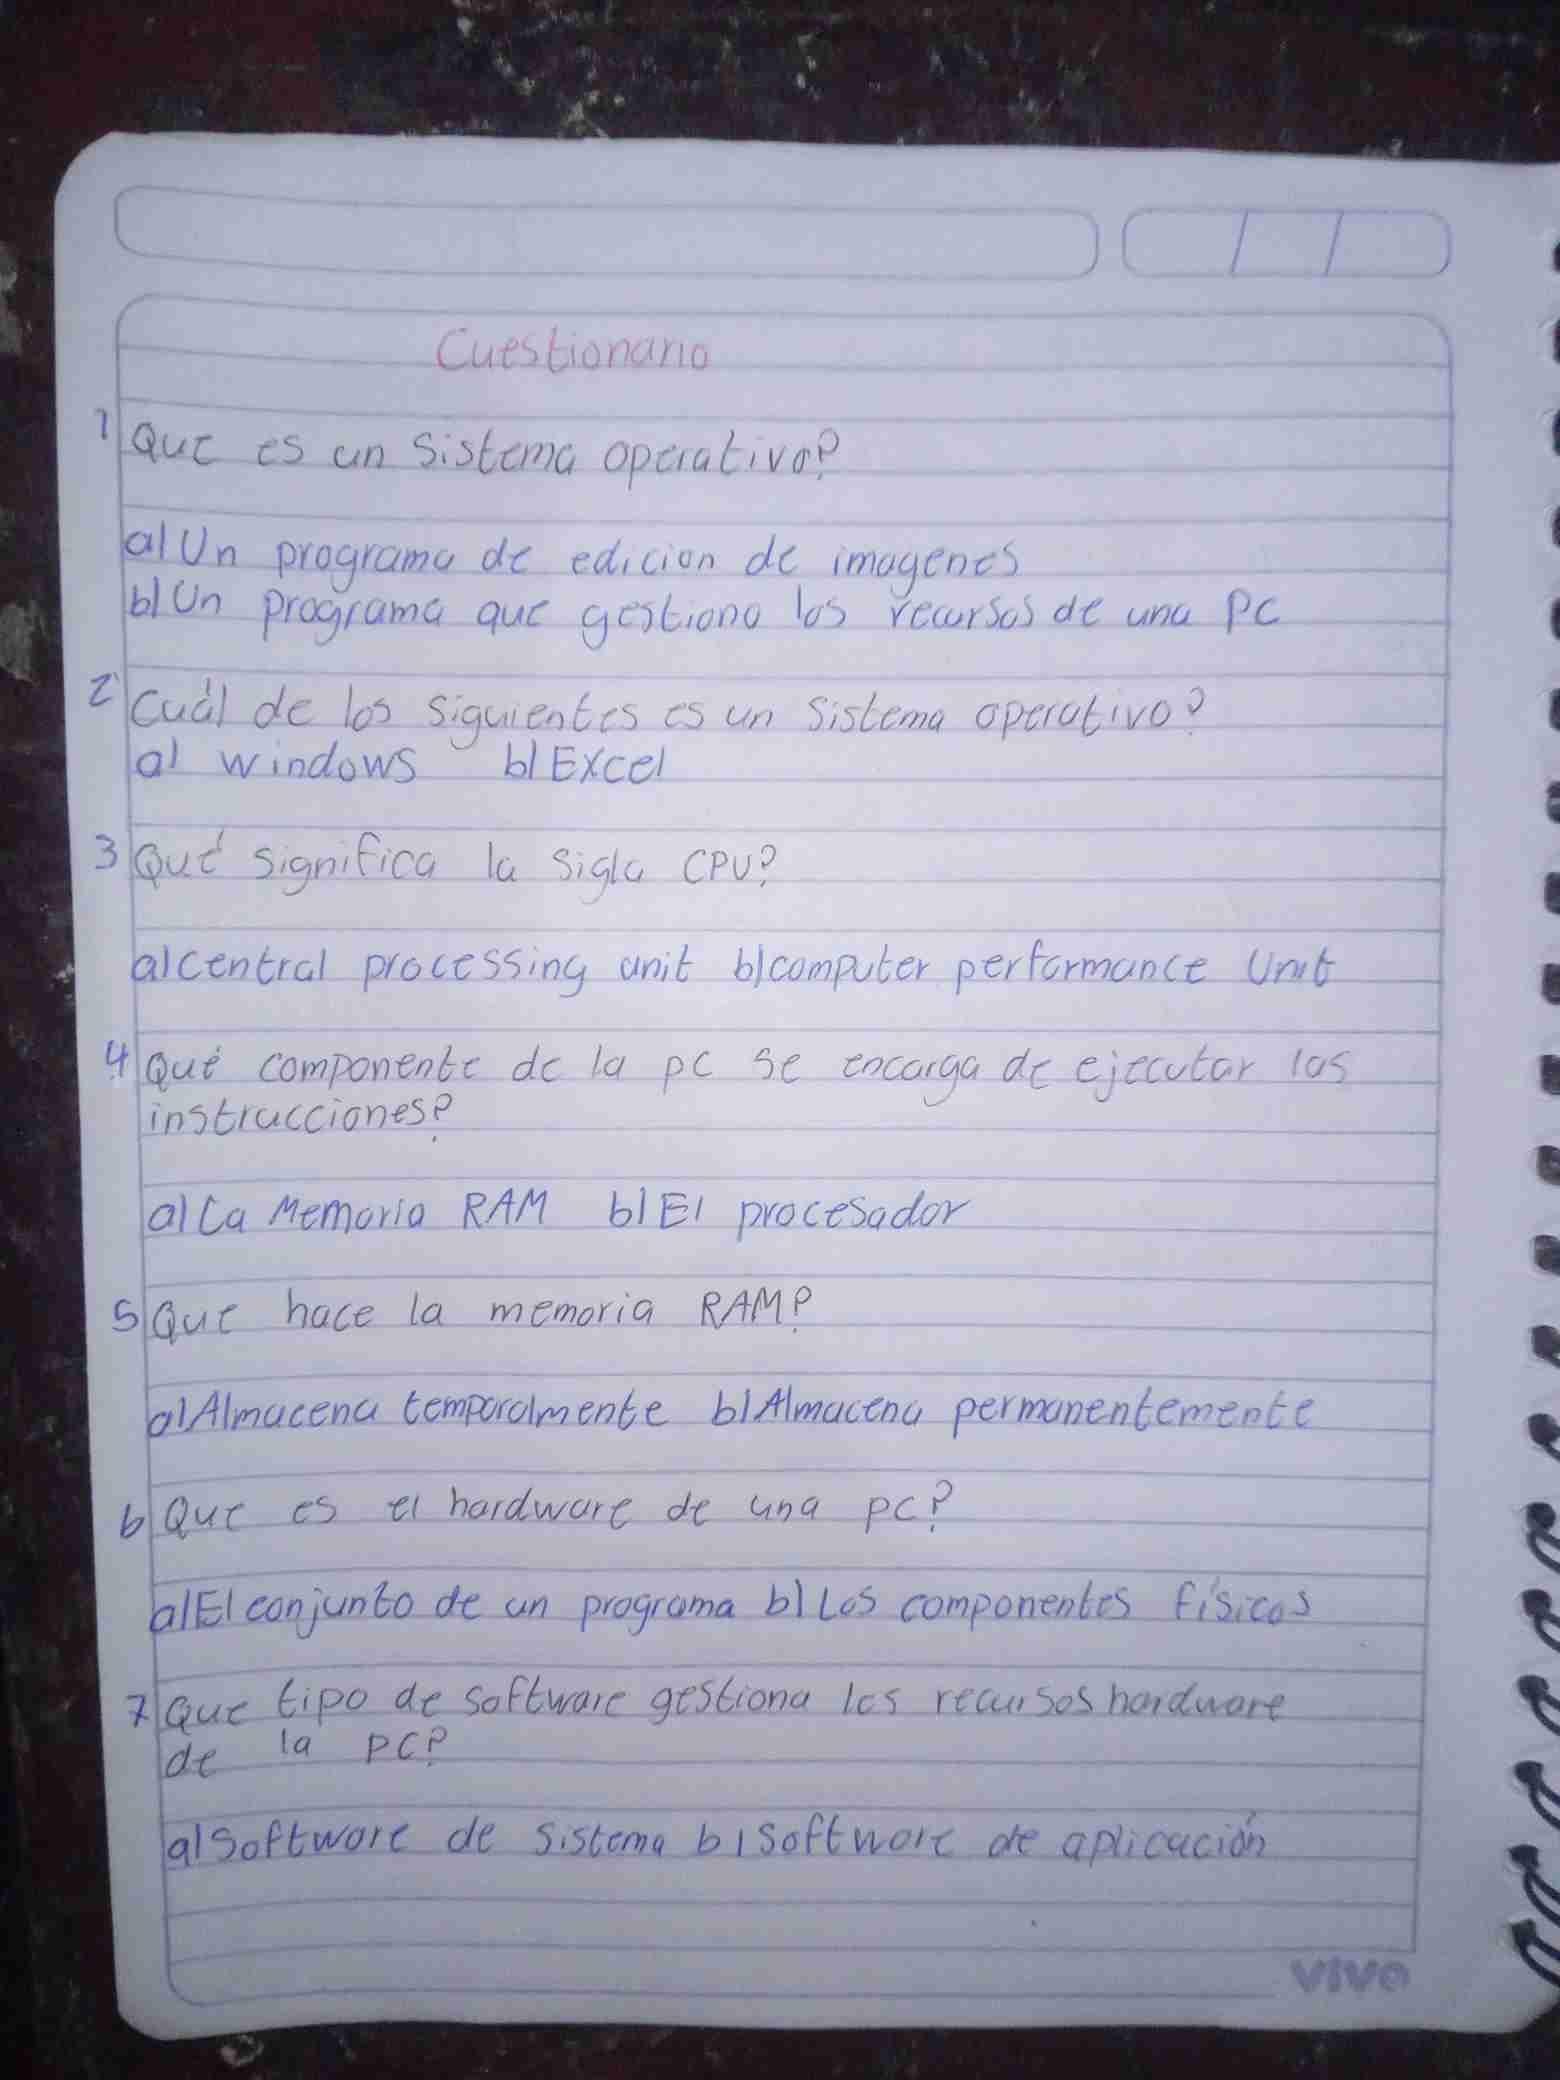 Cuestionario
1 Que es un sistema operativo?
a) Un programa de edicion de imagenes
b) Un programa que gestiona los recursos de una PC
2 Cuál de los siguientes es un sistema operativo?
a) windows b) Excel
3 Qué significa la sigla CPU?
a) central processing unit b) computer performance Unit
4 Qué componente de la pc se encarga de ejecutar las
instrucciones?
a) La Memoria RAM b) El procesador
5 Que hace la memoria RAM?
a) Almacena temporalmente b) Almacena permanentemente
6 Que es el hardware de una pc?
a) El conjunto de un programa b) Los componentes físicos
7 Que tipo de software gestiona los recursos hardware
de la PC?
a) Software de sistema b) Software de aplicación
vivo